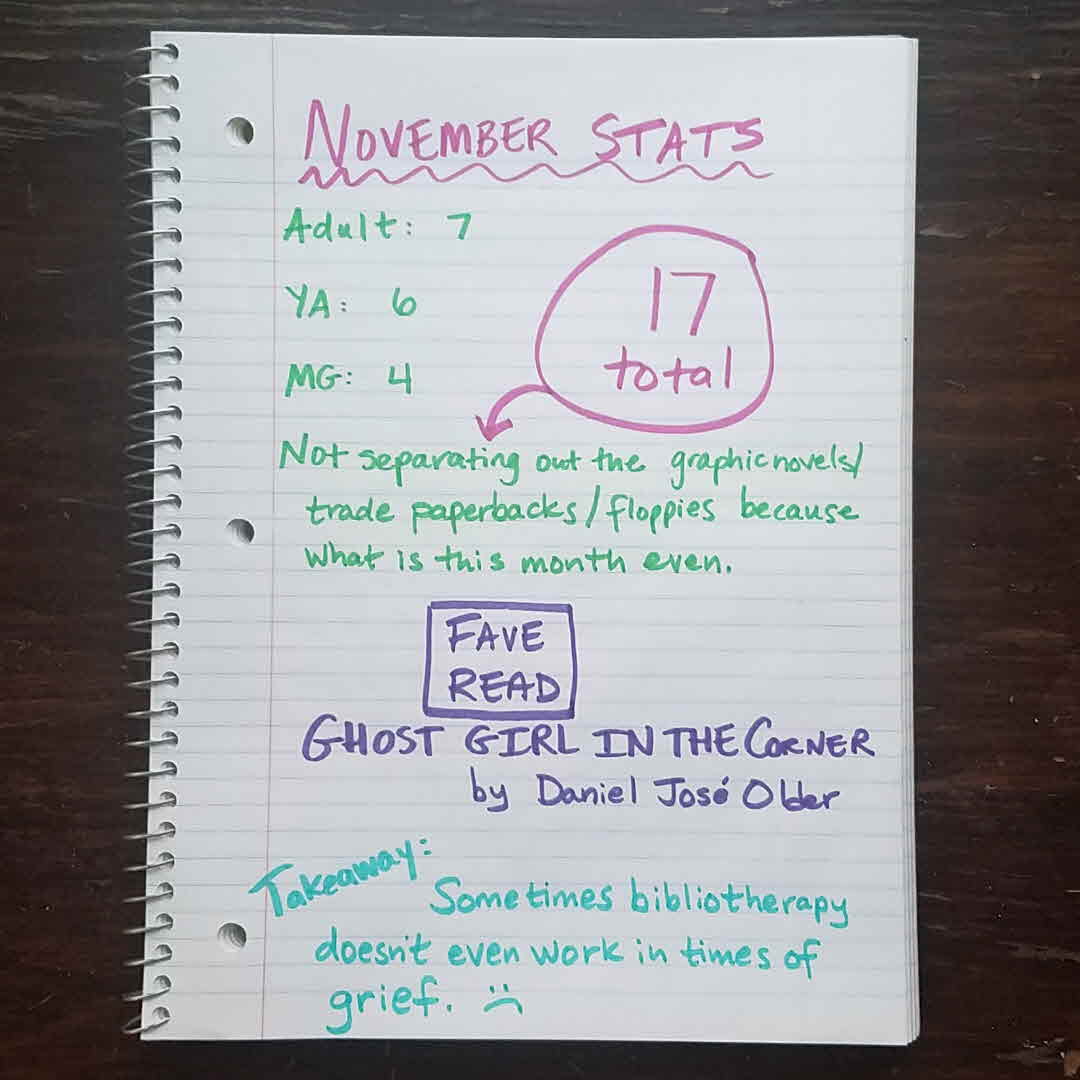 NOVEMBER STATS
Adult: 7
YA: 6
MG: 4
17
total
Not separating out the graphic novels/
trade paperbacks/floppies because
what is this month even.
FAVE
READ
GHOST GIRL IN THE CORNER
by Daniel José Older
Takeaway:
Sometimes bibliotherapy
doesn't even work in times of
grief. :(